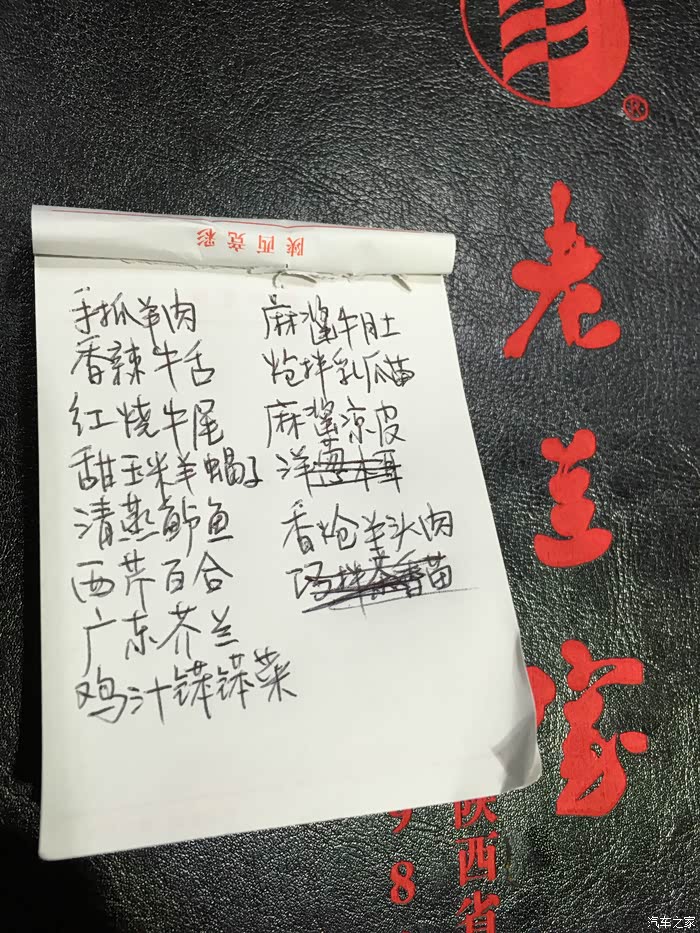 陕西竞彩
手抓羊肉
香辣牛舌
红烧牛尾
甜玉米羊蝎子
清蒸鲈鱼
西芹百合
广东芥兰
鸡汁钵钵菜
麻酱牛肚
炝拌乳瓜苗
麻酱凉皮
洋葱木耳
香炝羊头肉
香苗
老兰家
陕西省
98
®
汽车之家